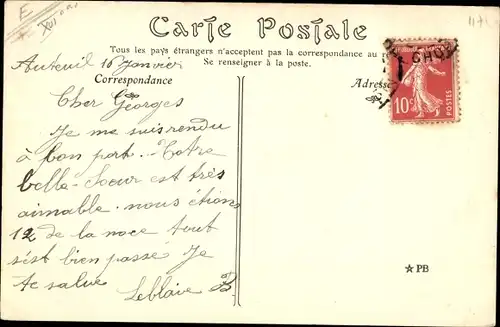 E
XVI
1171
Carte Postale
Tous les pays étrangers n'acceptent pas la correspondance au
Se renseigner à la poste.
Auteuil 16 Janvier
Correspondance
Adresse
Cher Georges
Je me suis rendu
à bon port. Votre
belle-Soeur est très
aimable. nous étions
12 de la noce tout
s'est bien passé Je
te salue Leblaie B
10c
POSTES
★ PB